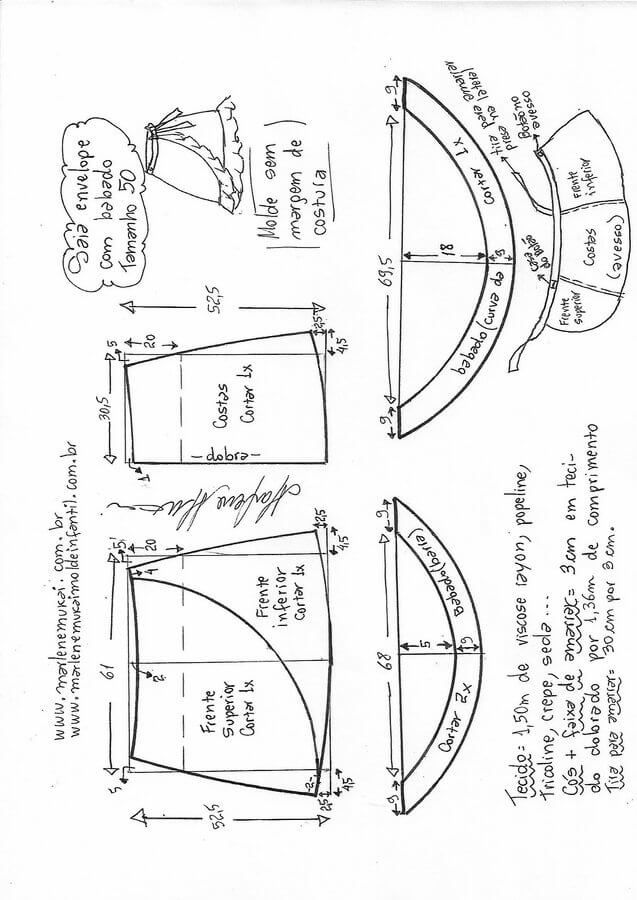 Saia envelope
com babado
Tamanho 50
Molde sem
margem de
costura
www.marlenemukai.com.br
www.marlenemukaimoldeinfantil.com.br
52,5
5
20
30,5
1
Costas
Cortar 1x
-dobra-
2,5
4,5
5
20
4
61
2
Frente
inferior
Cortar 1x
Frente
Superior
Cortar 1x
5
52,5
2
2,5
4,5
2,5
4,5
9
69,5
18
9
9
babado (curva da
Cortar 1x
9
68
5
9
9
Babado (barra)
Cortar 2x
tira para amarrar
presa na
lateral
Botão no
avesso
Casa do Botão
do
Frente
inferior
Costas
(avesso)
Frente
Superior
Tecido= 1,50m de viscose rayon, popeline,
Tricoline, crepe, seda...
Cós + faixa de amarrar= 3cm em teci-
do dobrado por 1,36m de comprimento
Tira para amarrar= 30cm por 3cm.